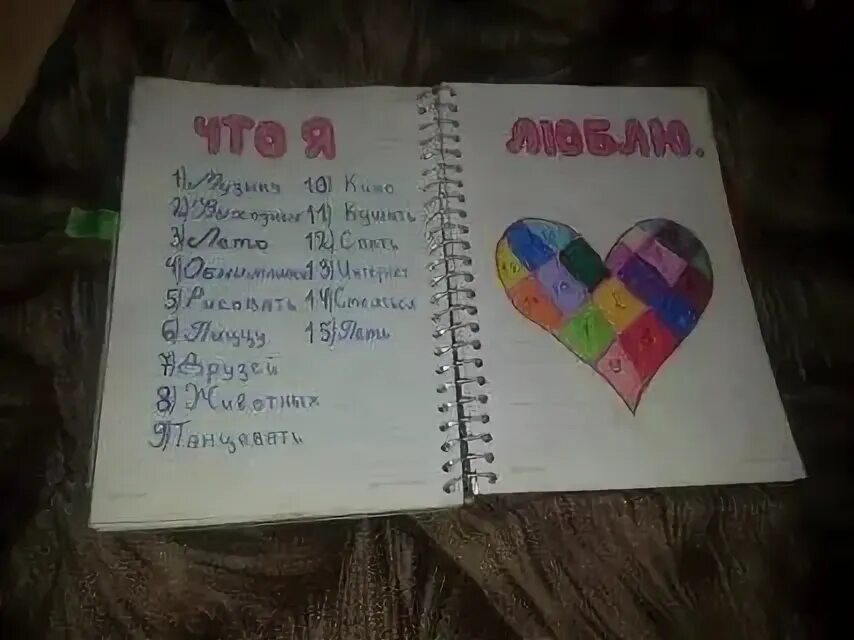 ЧТО Я ЛЮБЛЮ.
1) Музыка
2) Выходные
3) Лето
4) Обнимашки
5) Рисовать
6) Пиццу
7) Друзей
8) Животных
9) Танцевать
10) Кино
11) Кушать
12) Спать
13) Интернет
14) Смеяться
15) Петь